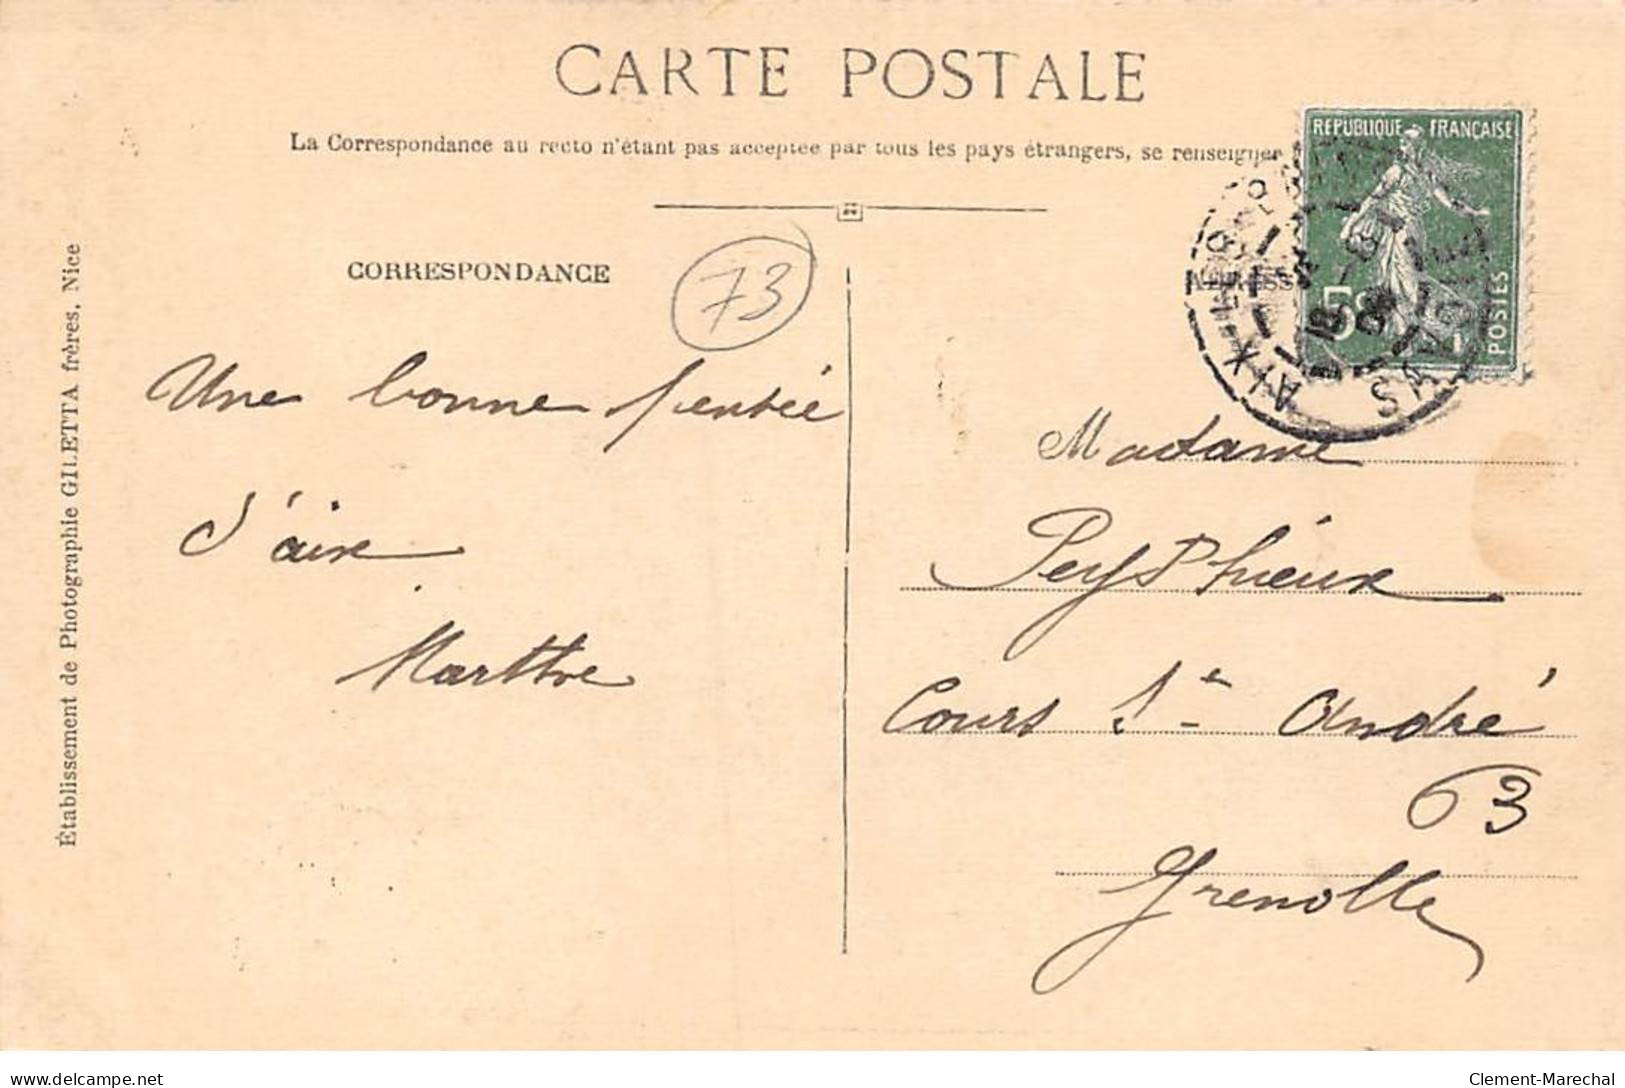 CARTE POSTALE
La Correspondance au recto n'étant pas acceptée par tous les pays étrangers, se renseigner
RÉPUBLIQUE FRANÇAISE
5c
POSTES
AIX-LES-BAINS
SAVOIE
CORRESPONDANCE
73
Une bonne pensée
d'aix
Marthe
Madame
Cours St André
63
Grenoble
Établissement de Photographie GILETTA frères, Nice
delcampe.net
Clement-Marechal